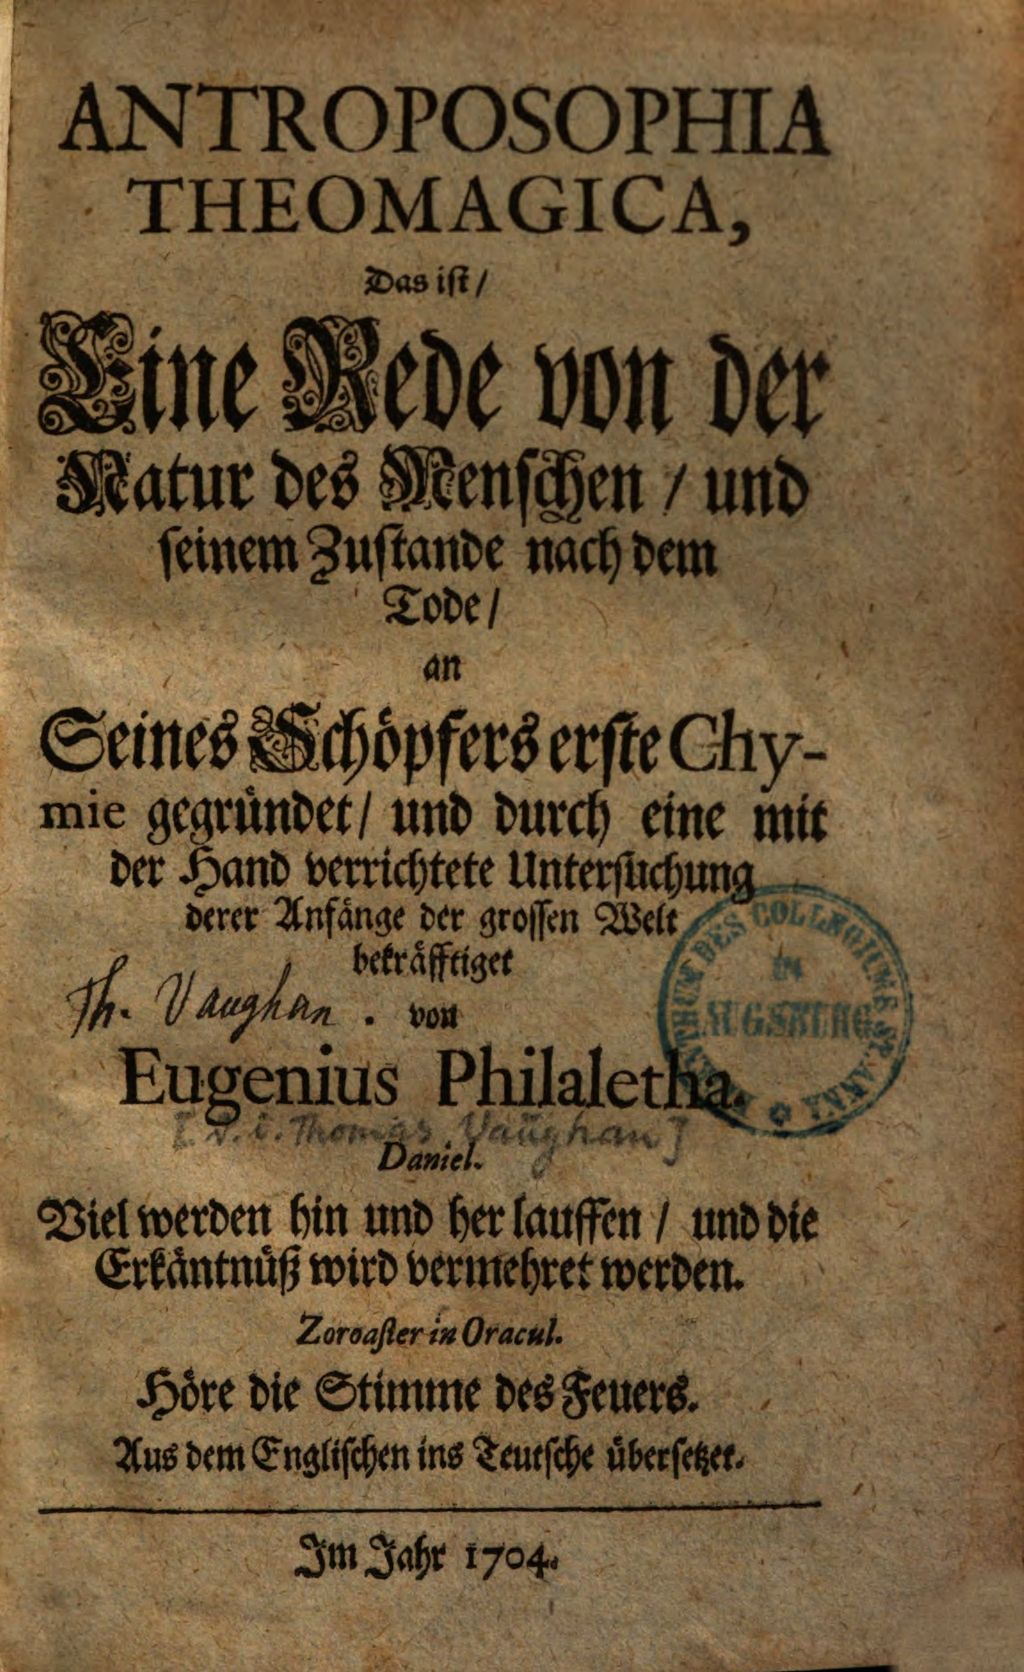 ANTROPOSOPHIA
THEOMAGICA,
Das ist /
Eine Rede von der
Natur des Menschen / und
seinem Zustande nach dem
Tode /
an
Seines Schöpfers erste Chy-
mie gegründet / und durch eine mit
der Hand verrichtete Untersuchung
derer Anfänge der grossen Welt
bekräfftiget
Th. Vaughan. von
Eugenius Philaletha.
[d. i. Thomas Vaughan]
Daniel.
Viel werden hin und her lauffen / und die
Erkäntnüß wird vermehret werden.
Zoroaster in Oracul.
Höre die Stimme des Feuers.
Aus dem Englischen ins Teutsche übersetzet.
Im Jahr 1704.
DES COLLEGIUMS ST. ANNA
IN
AUGSBURG